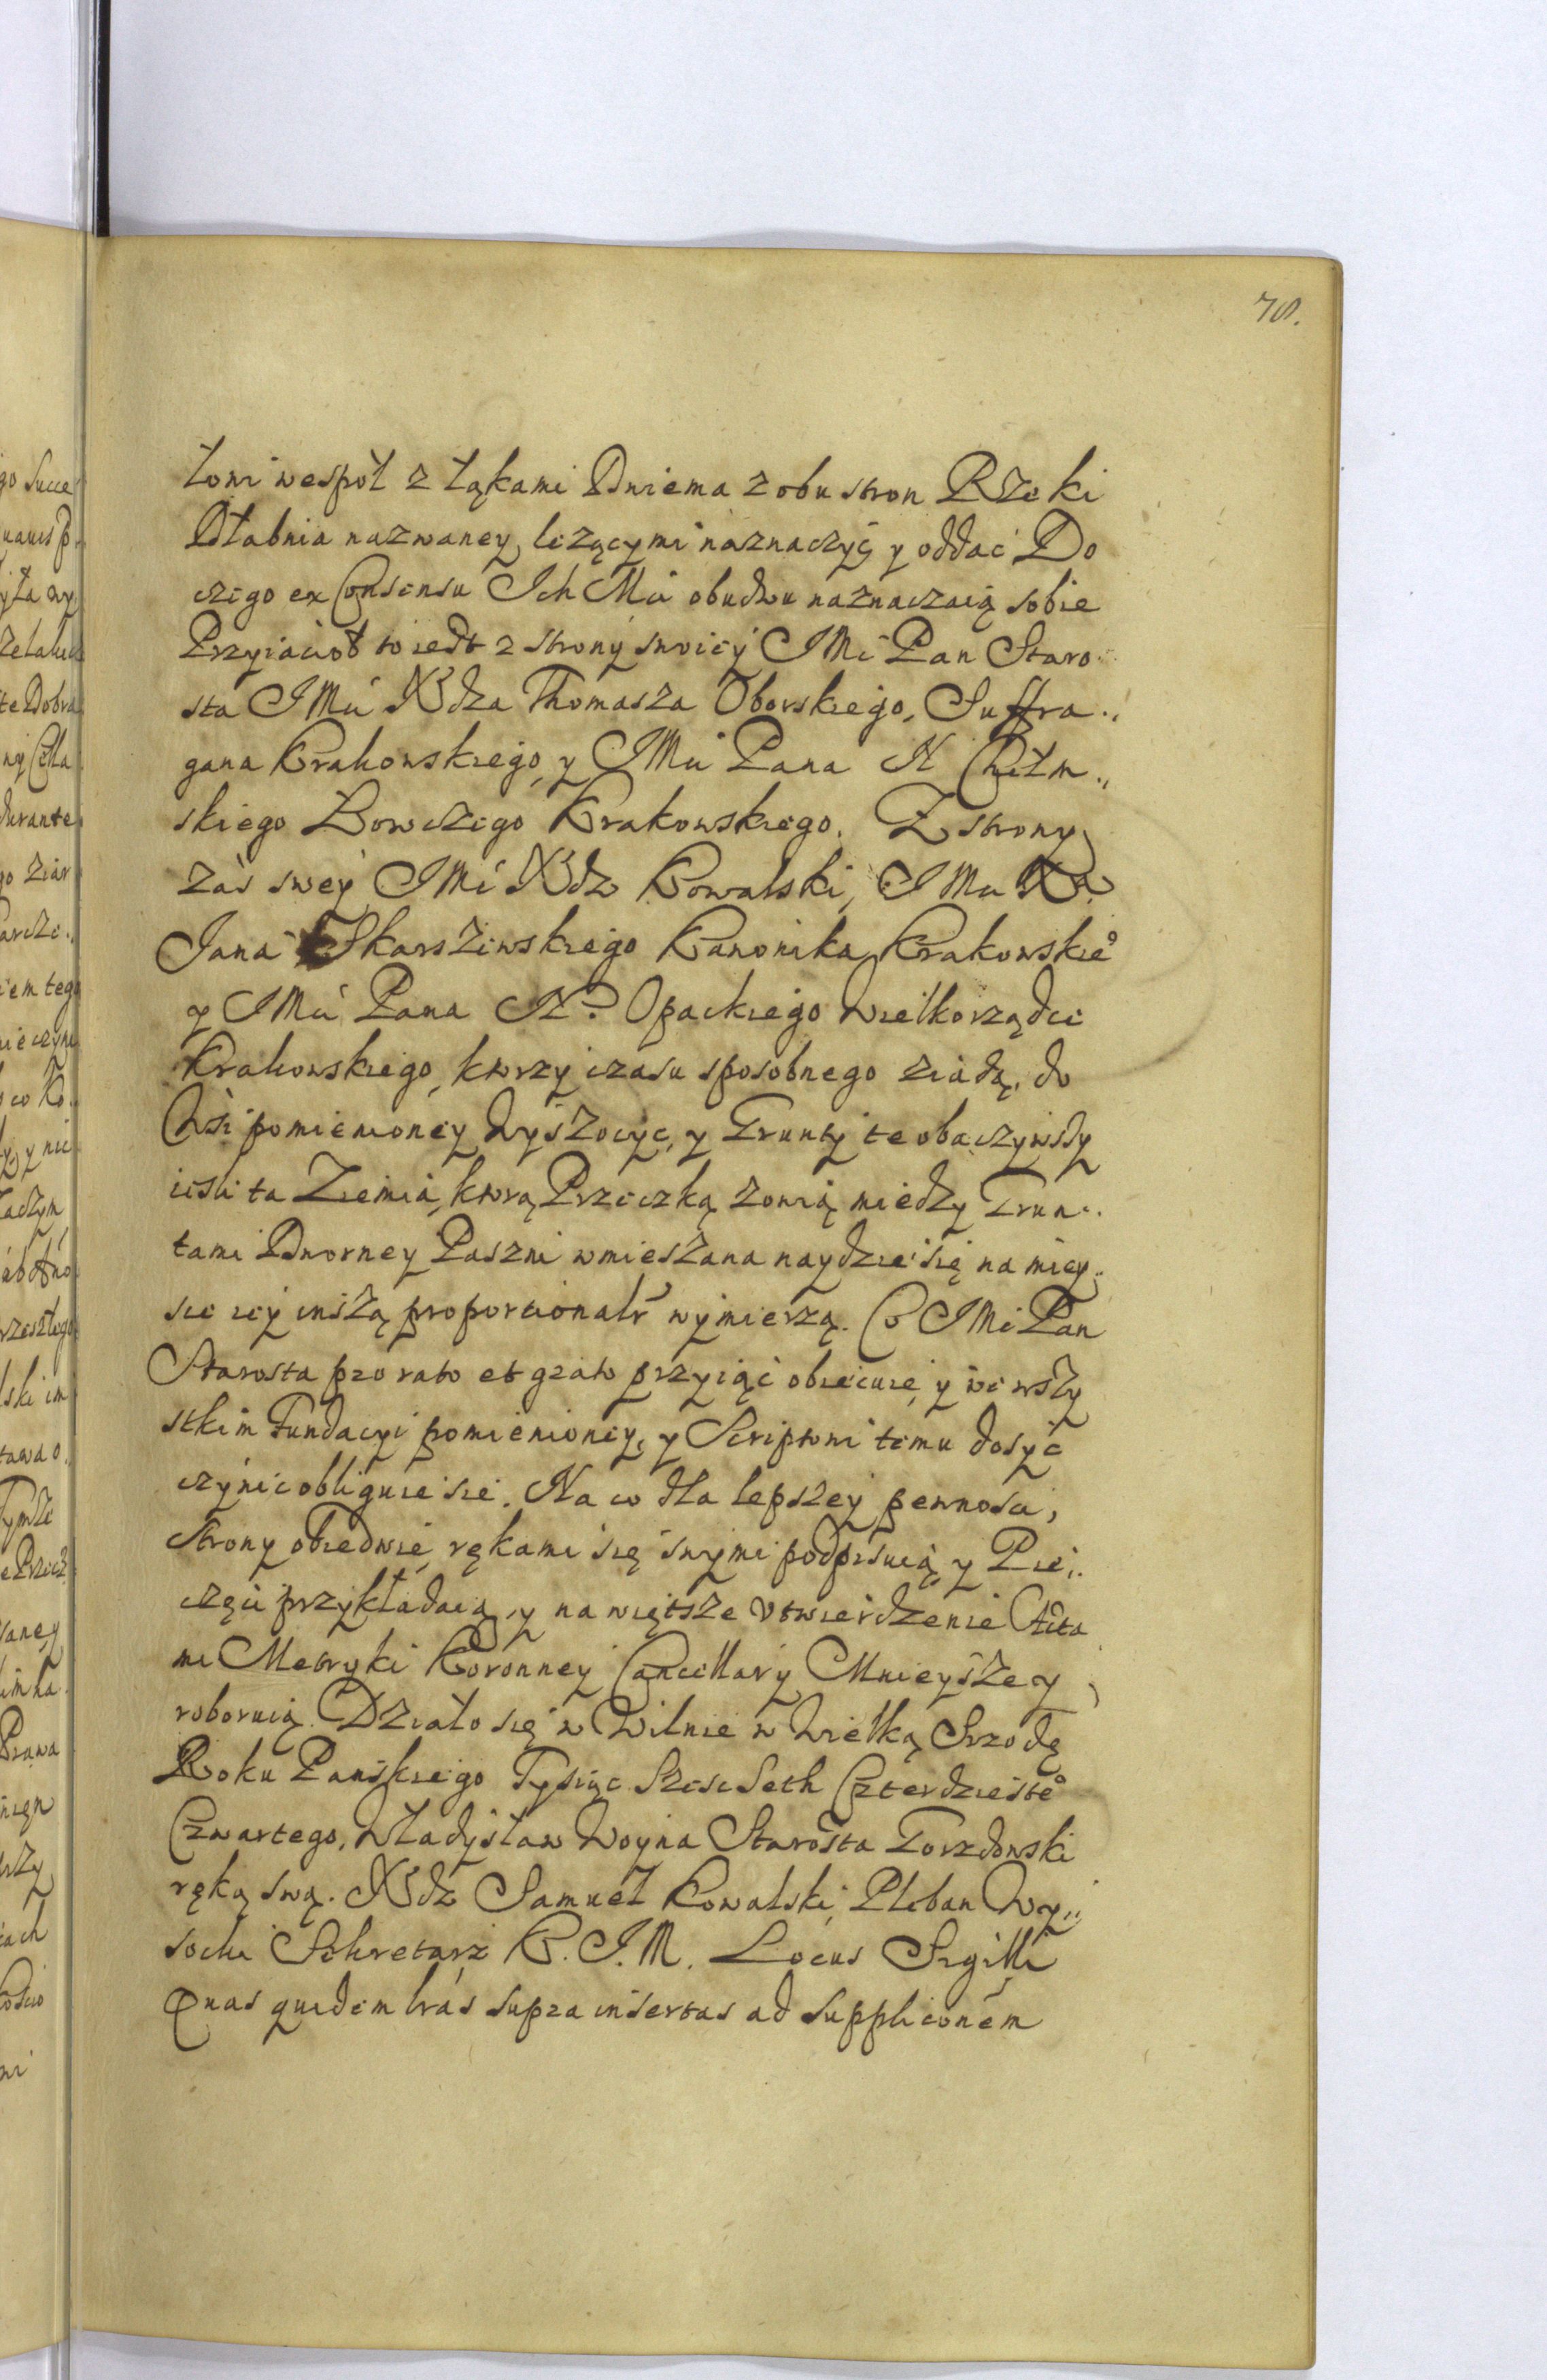 78.
łowi wespoł z łąkami Dwiema z obu stron Rzeki
Dłabnia nazwaney, leżącymi naznaczyć y oddać Do
czego ex Consensu Ich Mci obudwu naznaczaią sobie
Przyiacioł to iest z strony swoiey IMć Pan Staro..
sta IMci Xdza Thomasza Oborskiego, Suffra..
gana Krakowskiego, y IMci Pana N Chełm..
skiego Łowczego Krakowskiego. Z strony
zaś swey IMć Xdz Kowalski, IMci Xa
Jana Skarszewskiego Kanonika Krakowskie͛
y IMci Pana N? Opackiego Wielkorządce
Krakowskiego, ktorzy czasu sposobnego ziadą, do
Wsi pomienioney Wyszocyc, y Grunty te obaczywszy
iesli ta Ziemia, ktorą Przeczką zowią między Grun..
tami Dworney Paszni wmieszana naydzie się na miey..
sce iey inszą proportionalr wymierzą. Co IMć Pan
Starosta pro rato et grato przyiąć obiecuie, y we wszy
stkim Fundacyi pomienioney, y Scriptowi temu dosyć
czynic obliguie sie. Na co dla lepszey pewnosci,
Strony obiedwie rękami się swymi podpisuią y Pie..
częci przykładaią, y na więtsze Utwierdzenie Akta
mi Metryki Koronney Cancellary Mnieyszey
roboruią. Działo się w Wilnie w Wielką Srzodę
Roku Pańskiego Tysiąc Szesc Seth Czterdzieste͛
Czwartego, Władysław Woyna Starosta Gorzdowski
ręką swą. Xdz Samuel Kowalski, Pleban Wy..
socki Sekretarz K. I. M. Locus Sigilli
Quas quidem lras supra insertas ad suppliconém